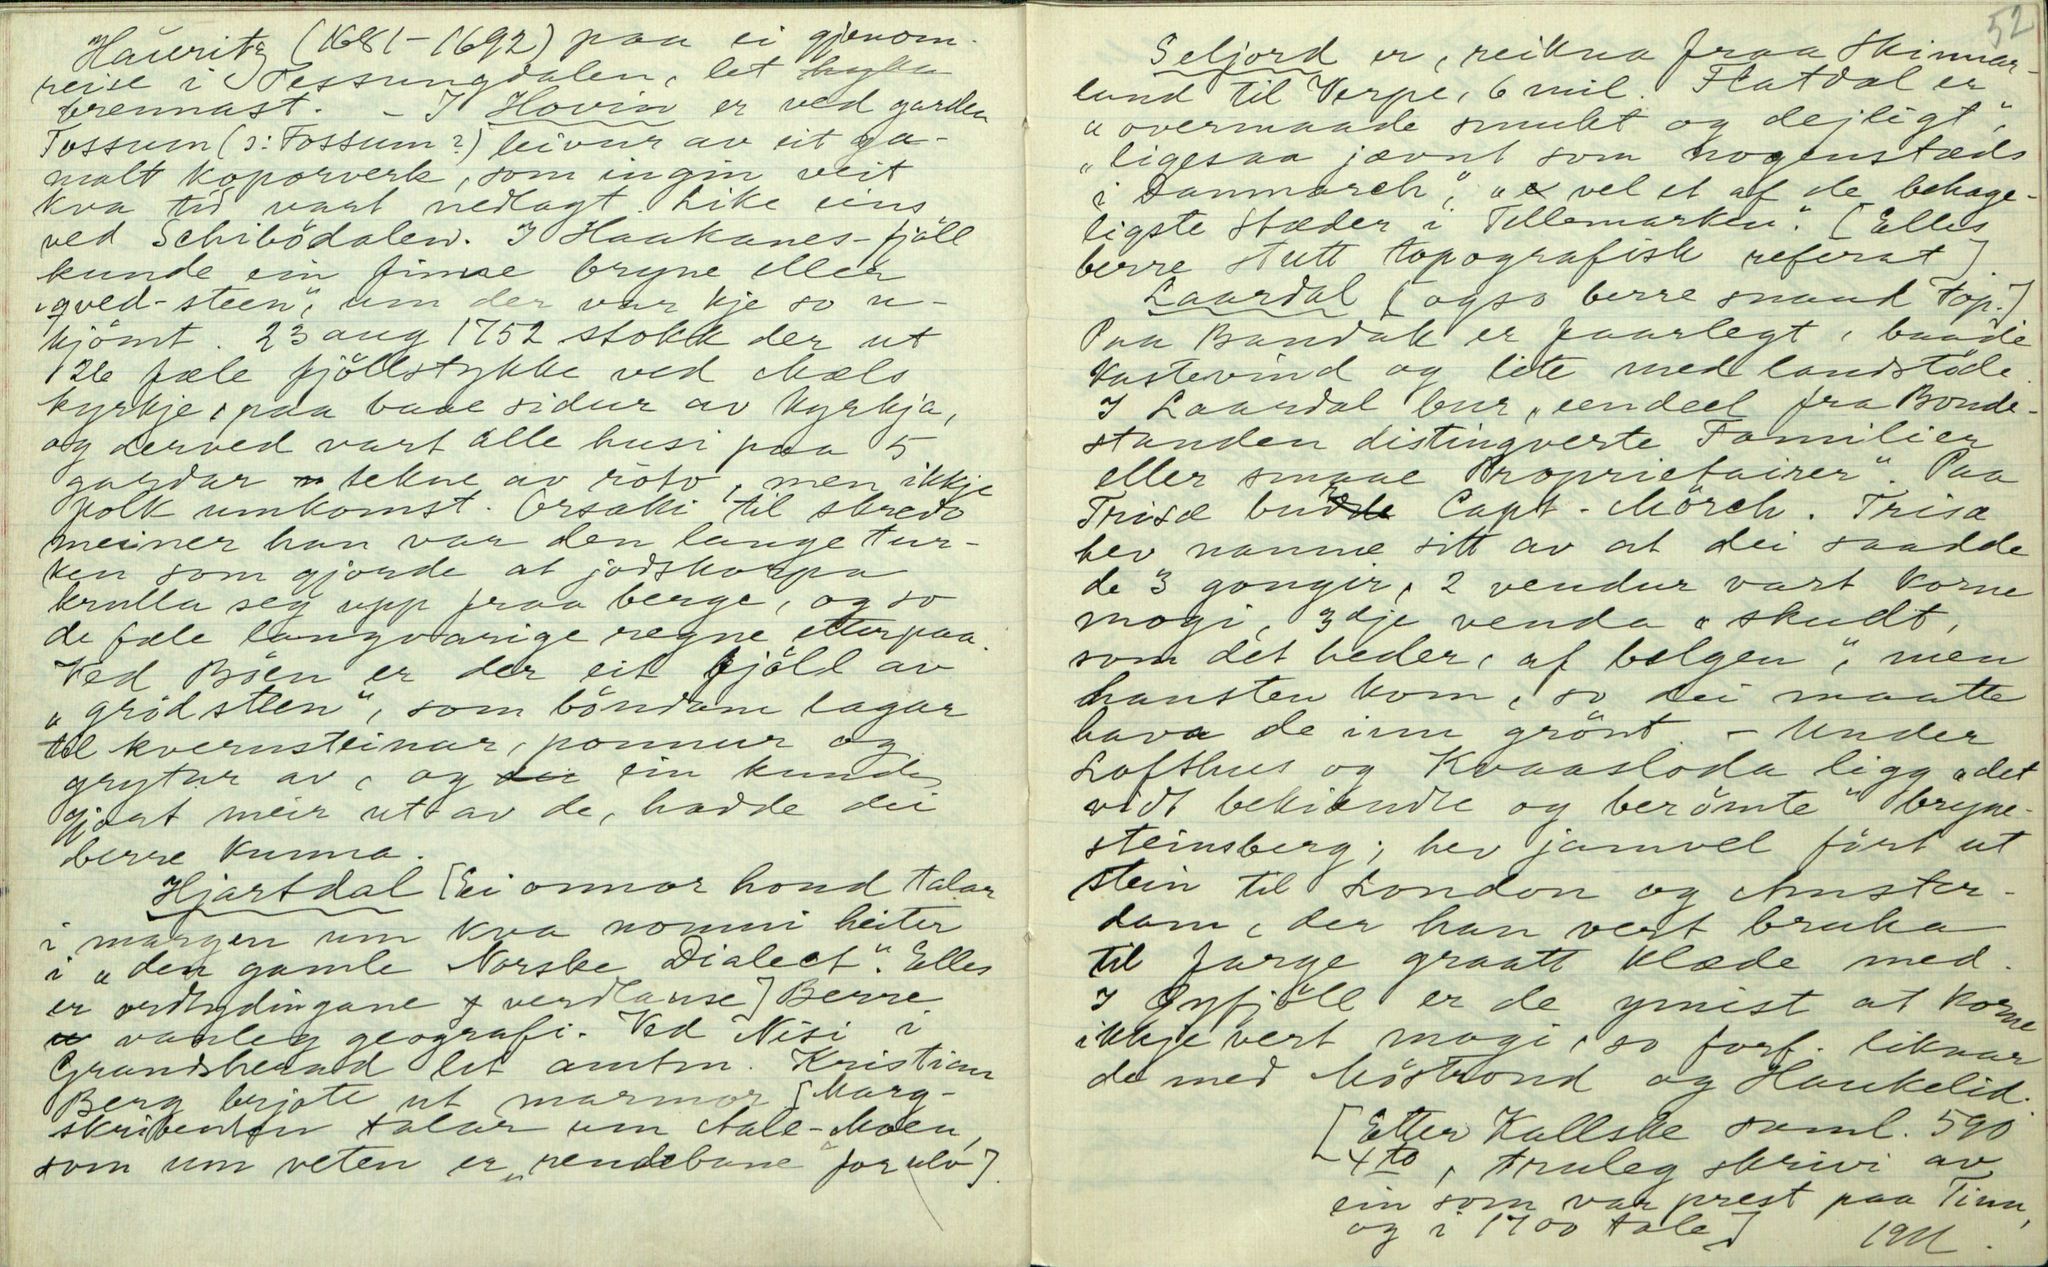 Hauritz (1681-1692) paa ei gjenom-
reise i Tessungdalen, let
brennast. - I Hovin er ved garden
Tossum (ɔ: Fossum?) leivur av eit ga-
malt koporverk, som ingin veit
kva tid vart nedlagt. Like eins
ved Schibödalen. I Haakanes-fjöll
kunde ein finne bryne eller
"qved-steen", um der var kje so u-
kjömt. 23 aug 1752 stokk der ut
26 fæle fjöllstykke ved Mæls
kyrkje, paa baae sidur av kyrkja,
og derved vart alle husi paa 5
gardar tekne av röto, men ikkje
folk umkomst. Orsaki til skredo
meiner han var den lange tur-
ken som gjorde at jodskorpa
krulla seg upp fraa berge, og so
de fæle langvarige regne etterpaa.
Ved Böen er der eit fjöll av
"grödsteen", som böndane lagar
til kvernsteinar, ponnur og
grytur av, og ein kunde
gjort meir ut av de, hadde dei
berre kunna.
Hjartdal [Ei onnor hond talar
i margen um kva nomni heiter
i "den gamle Norske Dialect". Elles
er ordtydingane verdlause] Berre
vanleg geografi. Ved Nisi i
Grandsherad let amtm. Kristian
Berg brjote ut marmor [Marg-
skribenten talar um Aale-Moen,
som um veten er "rendebane" for ulv].
52
Seljord er, reikna fraa Skinnar-
land til Verpe, 6 mil. Flatdal er
"overmaade smukt og dejligt",
"ligesaa jævnt som nogenstæds
i Danmarch", "vel et af de behage-
ligste stæder i Tellemarken". [Elles
berre stutt topografisk referat]
Laardal [ogso berre snaud top.]
Paa Bandak er faarlegt, baade
kastevind og lite med landstöde.
I Laardal bur "eendeel fra Bonde-
standen distingverte Familier
eller smaae Proprietairer". Paa
Trisæ bur Capt. Mörch. Trisæ
hev namne sitt av at dei saadde
de 3 gongir, 2 vendur vart korne
mogi, 3dje venda "skudt,
som det heder, af belgen", men
hausten kom, so dei maatte
hava de inn grönt. - Under
Lofthus og Kvaasloda ligg "det
vidt bekiendte og berömte" bryne-
steinsberg; hev jamvel fört ut
stein til London og Amster-
dam, der han vert bruka
til farge graatt klæde med.
I Øyfjöll er de ymist at korne
ikkje vert mogi, so forf. liknar
de med Möstrond og Haukelid.
[Etter Kallske saml. 590
4to, truleg skrivi av
ein som var prest paa Tinn,
og i 1700 tale]
1911.